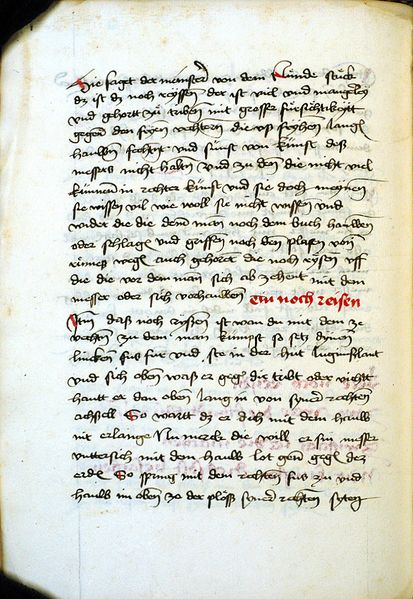 Hie sagt der meinster von dem Nünde stück
dz ist dz noch reyssen der ist vil und mangeley
und gehortt zu triben mit grosser fürsichtikeytt
gegen den fryen vechtern die usz fryhen langen
hauwen fechten und sünst von künst desz
messers nicht halten und zu den die nicht viel
künnen in rechter künst und sie doch meynen
sie wissen vil wie woll sie nicht wissen und
widet die die dem man noch dem buch hauwen
oder schlagen und griffen noch den plosen von
wegen auch gehorett die noch rysen uff
die die vor dem man sich ab zehent mit dem
messer oder sich verhauwen ein noch reisen
Item dasz noch ryssen ist wan du mit dem ze
vechten zu dem man kumpst so setz dynen
lincken fus fur und sto in der hut luginslant
und sich eben was er gegen dir tribt oder vicht
hautt er dan oben lang in von syner rechten
achseln So wartt dz er dich mit dem hauw
nit erlange Nu merck die will er sin messer
unttersich mit dem hauw lot gen gegen der
erden So spring mit dem rechten fus zu und
hauw im oben ze der plösz syner rechten syten